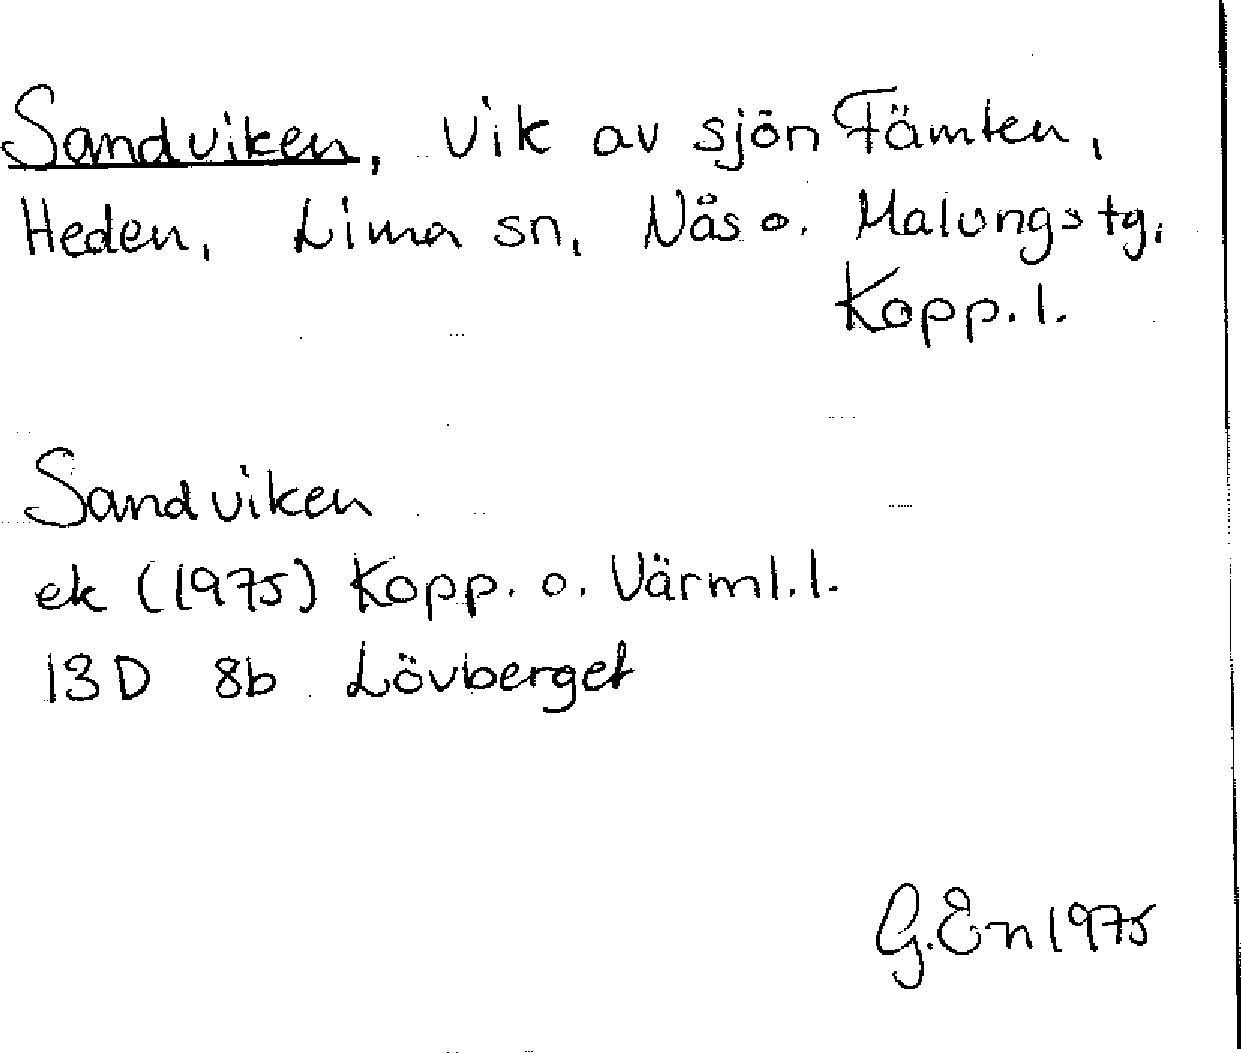 Sandviken, vik av sjön Fämten,
Heden, Lima sn, Näs o. Malungs tg.
Kopp. l.
Sandviken
ek (1975) Kopp. o. Värml. l.
13D 8b Lövberget
G. En 1975